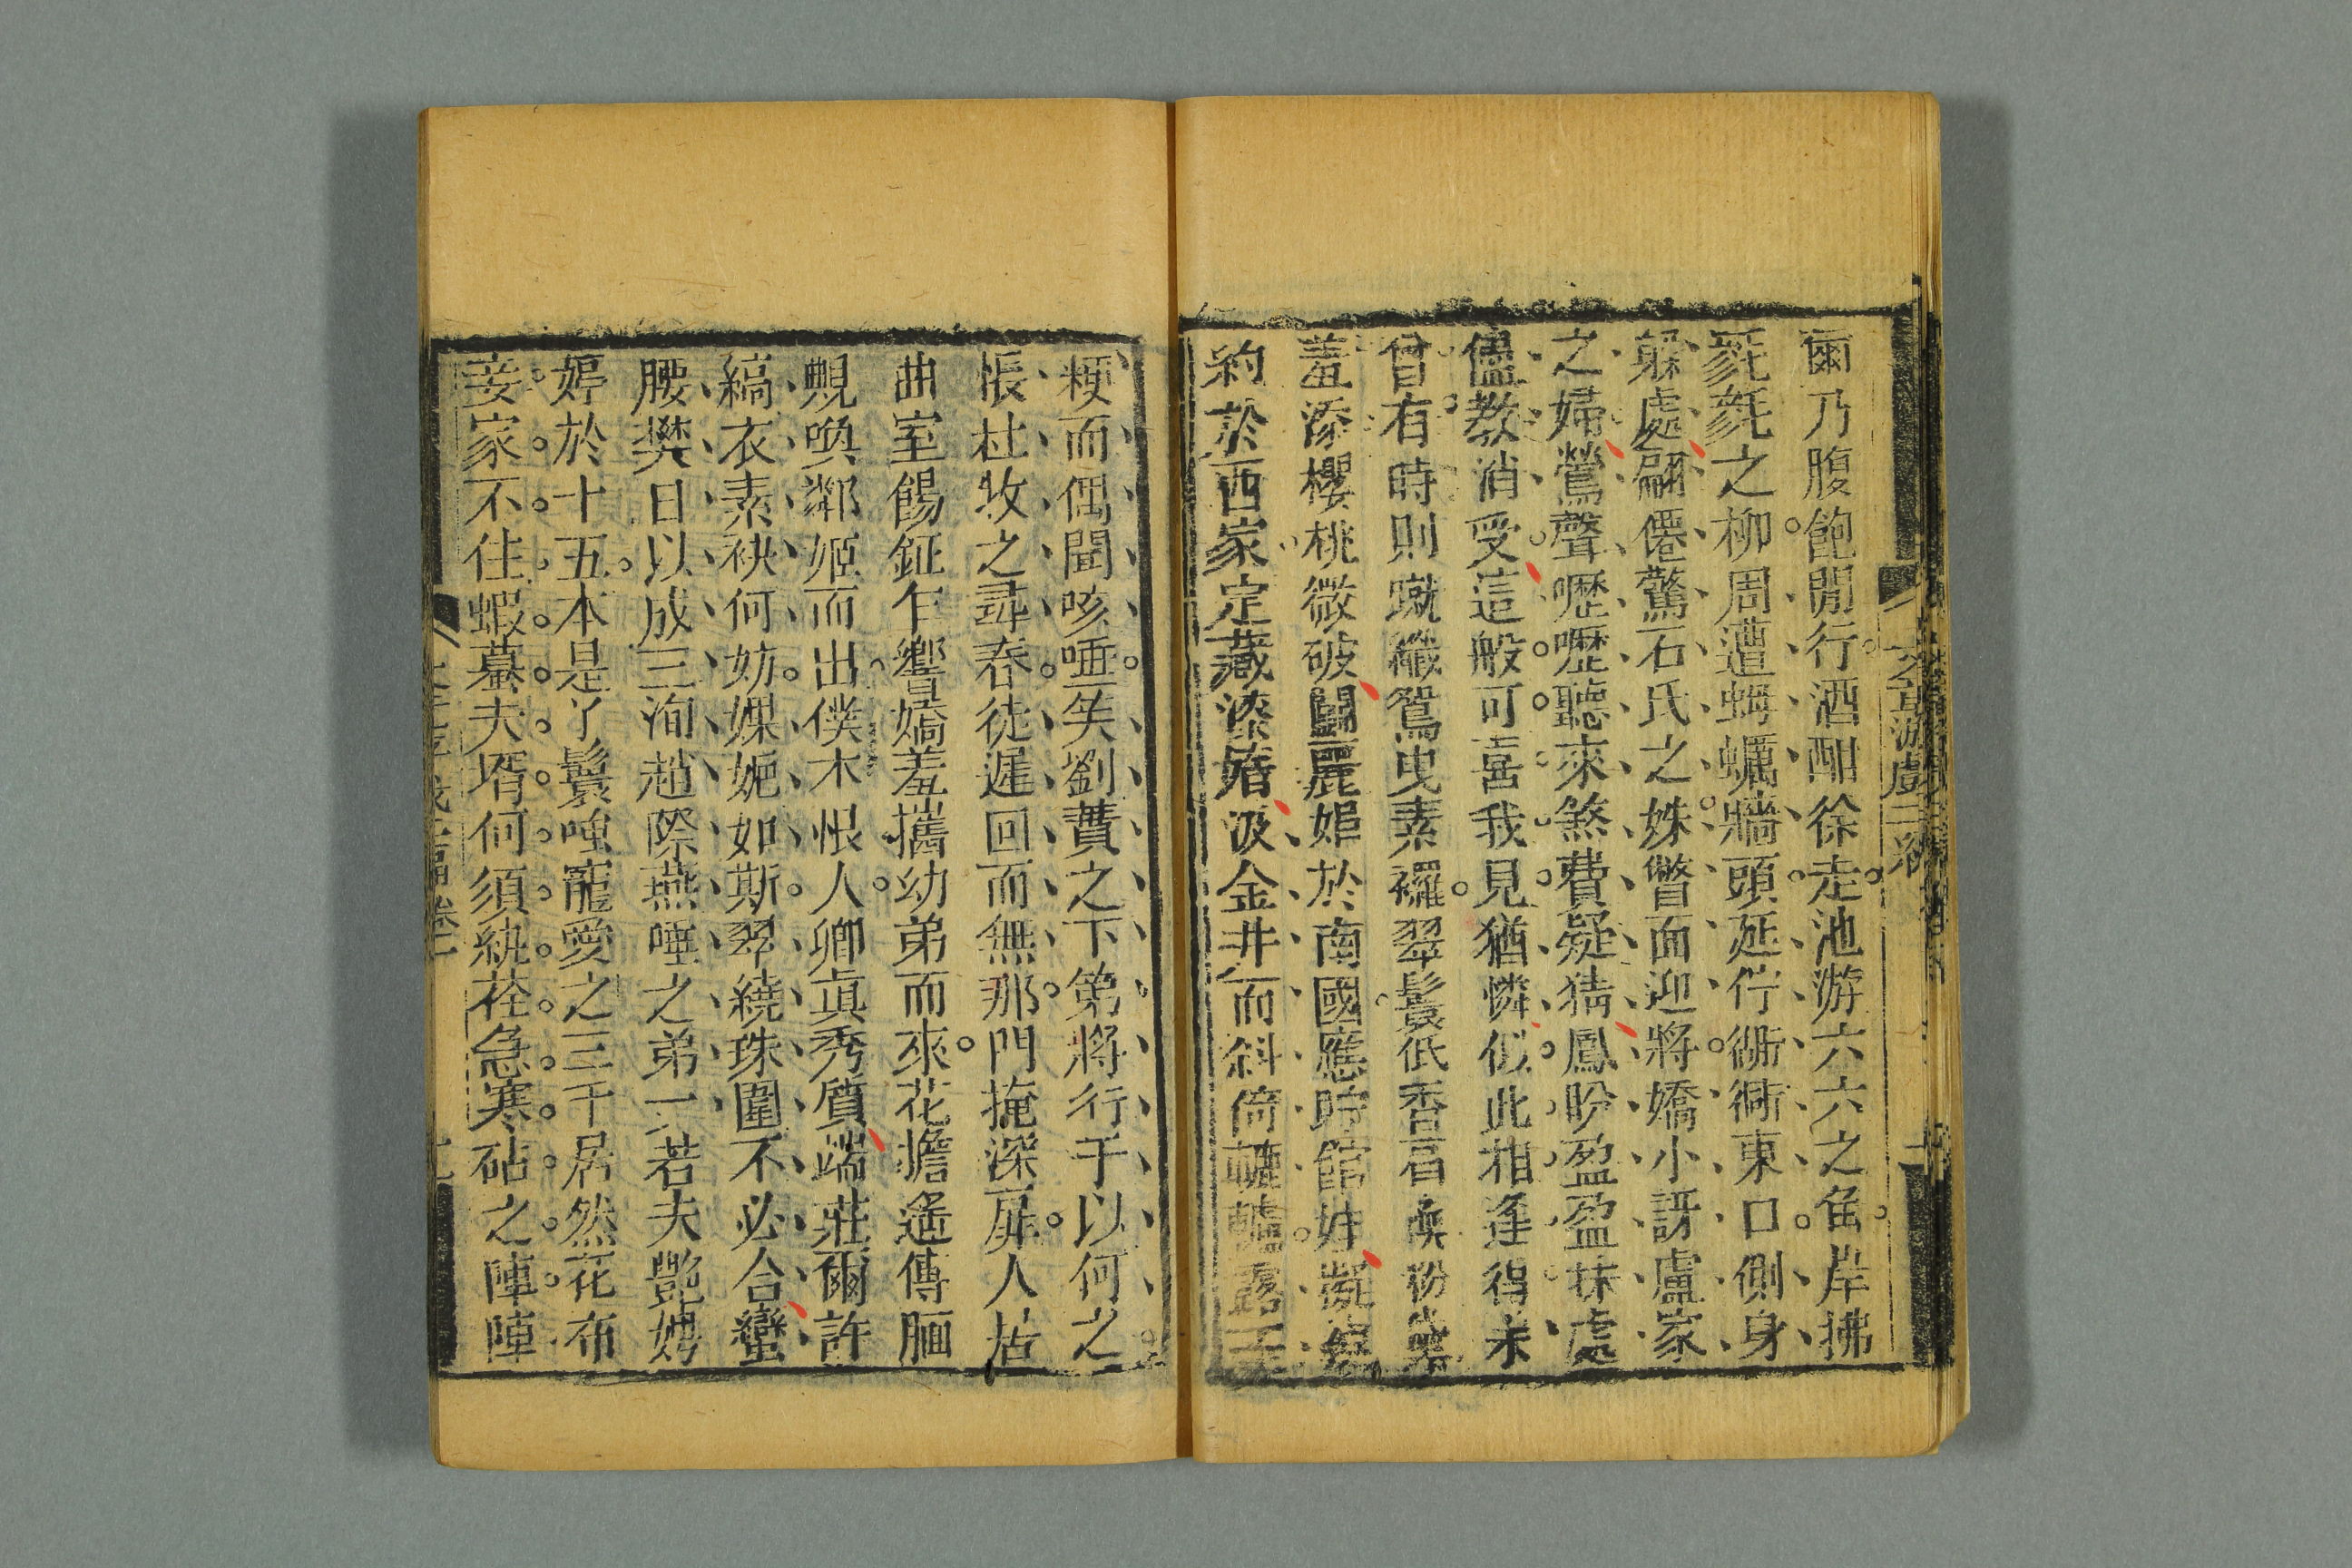 爾乃腹飽閒行酒酣徐走池游六六之魚岸拂
毿毿之柳周遭蜅蠣牆頭延佇衚衕東口側身
躲處翩僊驚石氏之姝瞥面迎將嬌小訝盧家
之婦鶯聲嚦嚦聽來煞費疑猜鳳盼盈盈抹處
儘教消受這般可喜我見猶憐似此相逢得未
曾有時則蹴纖鴛曳素襬翠鬟低香唇
羞添櫻桃微破鬭麗姬於南國應
約於西家定藏漆㛰汲金井而斜倚轆轤露玉
粳而偶聞咳唾笑劉蕡之下第將行于以何之
悵杜牧之尋春徒遲回而無那門掩深扉人居
曲室餳鉦乍響嬌羞攜幼弟而來花擔遙傳腼
覥喚鄰姬而出僕木恨人卿眞秀質端莊爾許
縞衣素袂何妨婐妮如斯翠繞珠圍不必合蠻
腰樊口以成三洵趙際燕唾之弟一若夫艷娉
婷於十五本是丫鬟唯寵愛之三千居然花布
妾家不住蝦蟇夫壻何須紈袴急寒砧之陣陣
文章游戲二編
卷二